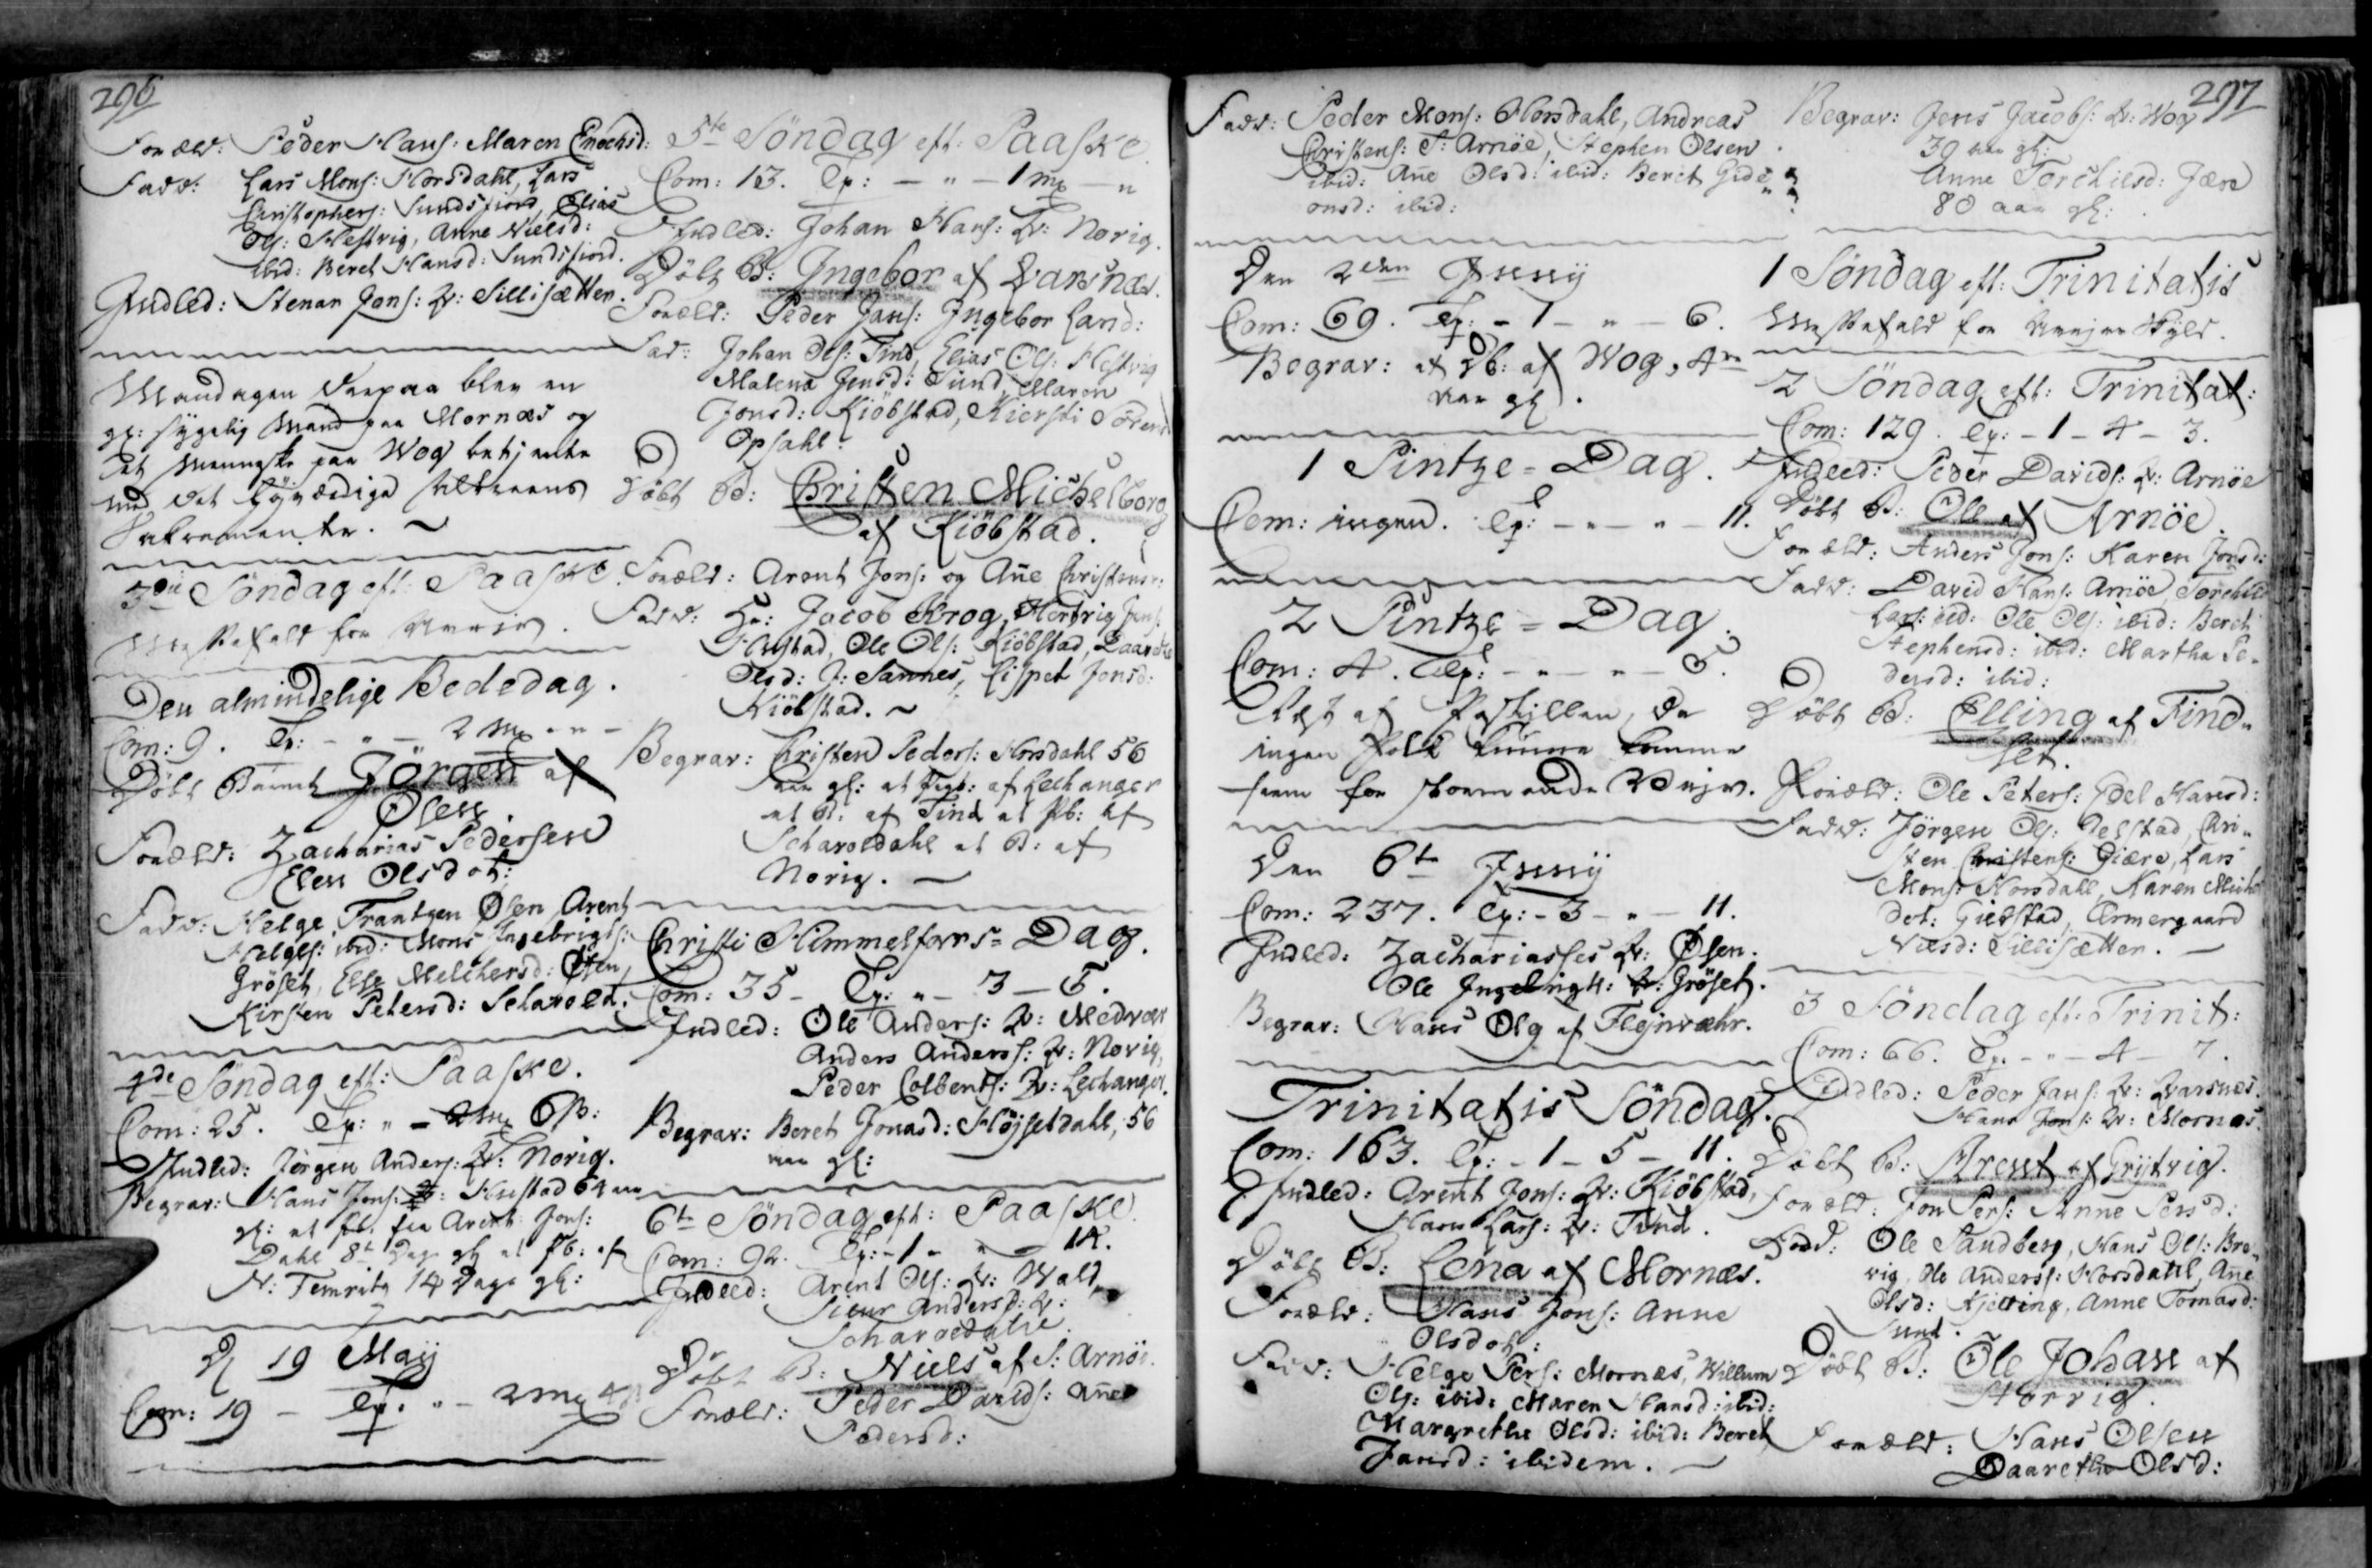 296
Foræld: Peder Hans: Maren Enochsd:
Fadd: Lars Mons: Horsdahl, Lars
Christophers: Sundsfiord, Elias
Ols: Hestvig, Anne Nielsd:
ibid: Beret Hansd: Sundsfiord.
Indled: Stenar Jons: Qv: Sillisætter.
Mandagen derpaa blev en
gl: sygelig Mand paa Mornæs og
et Menneske paa Wog betjente
med det høyværdige Alterens
Sakramente.
3die Søndag eft: Paaske.
Messefald for Uveir.
Den almindelige Bededag.
Com: 9. Tp: - " - 2 mk - " -
Døbt Barnet Jörgen af
Ölsen
Foræld: Zacharias Pedersen
Elen Olsdot:
Fadd: Helge Frantzen Ölsen Arent
Helges: ibid: Mons Ingebrigts:
Gröset, Else Melchersd: Ölsen,
Kirsten Petersd: Scharold.
4de Søndag eft: Paaske.
Com: 25. Tp: " - 2 mk 6 ß:
Indled: Jörgen Anders: Qv: Norig.
Begrav: Hans Jons: Hustad 64 aar
gl: et fb: fra Arent Jons:
Dahl 8t Dage gl: et fb: af
N: Temritz 14 Dage gl:
D 19 Maij
Com: 19 - Tp. " - 2 mk 4 ß
5te Söndag eft: Paaske.
Com: 13. Tp: - " - 1 mk - "
Indled: Johan Hans: Qv: Norig.
Döbt B: Ingebor af Qvarsnæs.
Foræld: Peder Jans: Ingebor Lard:
Fad: Johan Ols: Tind, Elias Ols: Hestvig
Malena Jensd: Sund, Maren
Jonsd: Kiöbstad, Kiersti Sörensd
Opsahl.
Döbt B: Christen Michelborg
af Kiöbstad.
Foræld: Arent Jons: og Añe Christensr:
Fadd: Hr: Jacob Krog, Hertvig Jens:
Hustad, Ole Ols: Kiöbstad, Daarethe
Olsd: J: Sannes, Lispet Jonsd:
Kiöbstad.
Begrav: Christen Peders: Horsdahl 56
aar gl: et Pigb: af Lechanger
et B: af Tind et Pb: af
Scharoldahl et B: af
Norig.
Christi Himmelfars-Dag.
Com: 35 - Tp: " - 3 - 5.
Indled: Ole Anders: Qv: Medvær
Anders Anderss: Qv: Norig,
Peder Colbents: Qv: Lechanger.
Begrav: Beret Jonasd: Höjsetdahl, 56
aar gl:
6te Söndag eft: Paaske
Com: 92. Tp: - 1 - " - 14.
Indled: Arent Ols: Qv: Wald,
Sieur Anderss: Qv:
Scharoldahl.
Döbt B: Niels af S: Arnöe.
Foræld: Peder Davids: Añe
Pedersd:
Fadd: Peder Mons: Horsdahl, Andreas
Christens: S: Arnöe, Stephen Olsen
ibid: Añe Olsd: ibid: Beret Gide-
onsd: ibid:
Den 2den Junij
Com: 69. Tp: - 1 - " - 6.
Begrav: et Db: af Wog, 4re
aar gl.
1 Pintze-Dag.
Com: ingen. Tp: - " - " - 11.
2 Pintze-Dag.
Com: 4. Tp: - " - " - 5.
Læst af Postillen, da
ingen Folk kunne komme
frem for stormende Vejr.
Den 6te Junij
Com: 237. Tp: - 3 - " - 11.
Indled: Zachariasses Qv: Ölsen.
Ole Ingebrigts: Qv: Gröset.
Begrav: Hans Olg af Flejnvæhr.
Trinitatis Söndag.
Com: 163. Tp: - 1 - 5 - 11.
Indled: Arent Jons: Qv: Kiöbstad,
Hans Lars: Qv: Tind.
Döbt B: Lena af Mornæs.
Foræld: Hans Jons: Anne
Olsdot:
Fadd: Helge Pers: Mornæs, Willum
Ols: ibid: Maren Hansd: ibid:
Margrethe Olsd: ibid: Beret
Jansd: ibidem.
297
Begrav: Jens Jacobs: Qv: Wog
39 aar gl:
Anne Torchilsd: Jære
80 aar gl:
1 Söndag eft: Trinitatis
Messefald for Uvejrs Skyld.
2 Söndag eft: Trinitat:
Com: 129. Tp: - 1 - 4 - 3.
Indled: Peder Davids: Qv: Arnöe
Döbt B: Ole af Arnöe.
Foræld: Anders Jons: Karen Jonsd:
Fadd: David Hans: Arnöe, Torchild
Lars: ibid: Ole Ols: ibid: Beret
Stephensd: ibid: Martha Pe-
dersd: ibid:
Döbt B: Elling af Tind-
set.
Foræld: Ole Peters: Edel Hansd:
Fadd: Jörgen Ols: Delstad, Chri-
sten Christens: Giære, Lars
Mons: Horsdahl, Karen Michel
dot: Giebstad, Ermergaard
Nielsd: Sillisætter.
3 Söndag eft: Trinit:
Com: 66. Tp. - " - 4 - 7.
Indled: Peder Jans: Qv: Qvarsnes.
Hans Jons: Qv: Mornæs.
Döbt B: Arent af Grytvig.
Foræld: Jon Pers: Anne Persd:
Fadd: Ole Sandberg, Hans Ols: Bre-
vig, Ole Anderss: Horsdahl, Añe
Olsd: Kjelling, Anne Tomasd:
Sund.
Döbt B: Ole Johan af
Storvig.
Foræld: Hans Olsen
Daarethe Olsd: